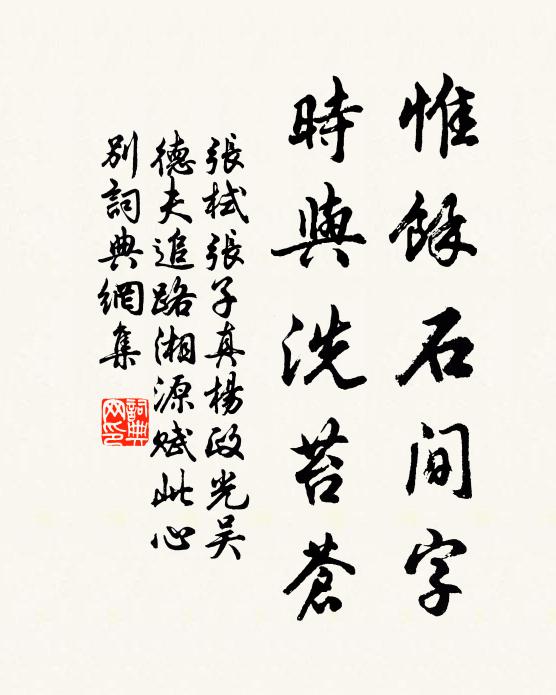 惟餘石間字
時與洗苔蒼
張栻張子真楊政光吴
德夫追路湘源賦此心
別詞典網集
詞典網印